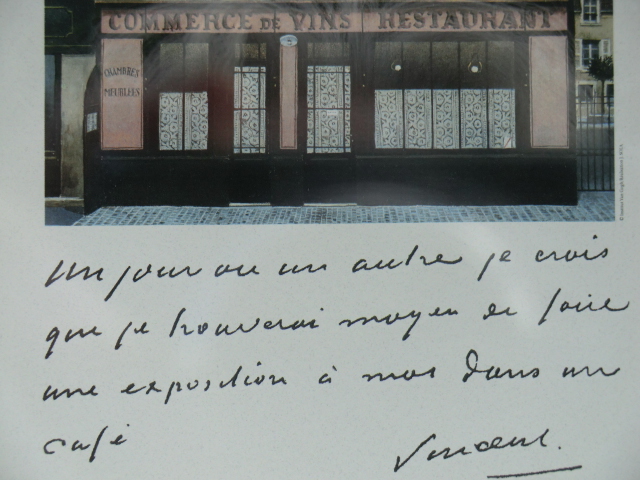 COMMERCE DE VINS RESTAURANT
CHAMBRES
MEUBLEES
Un jour ou un autre je crois
que je trouverai moyen de faire
une exposition à moi dans un
café
Vincent.